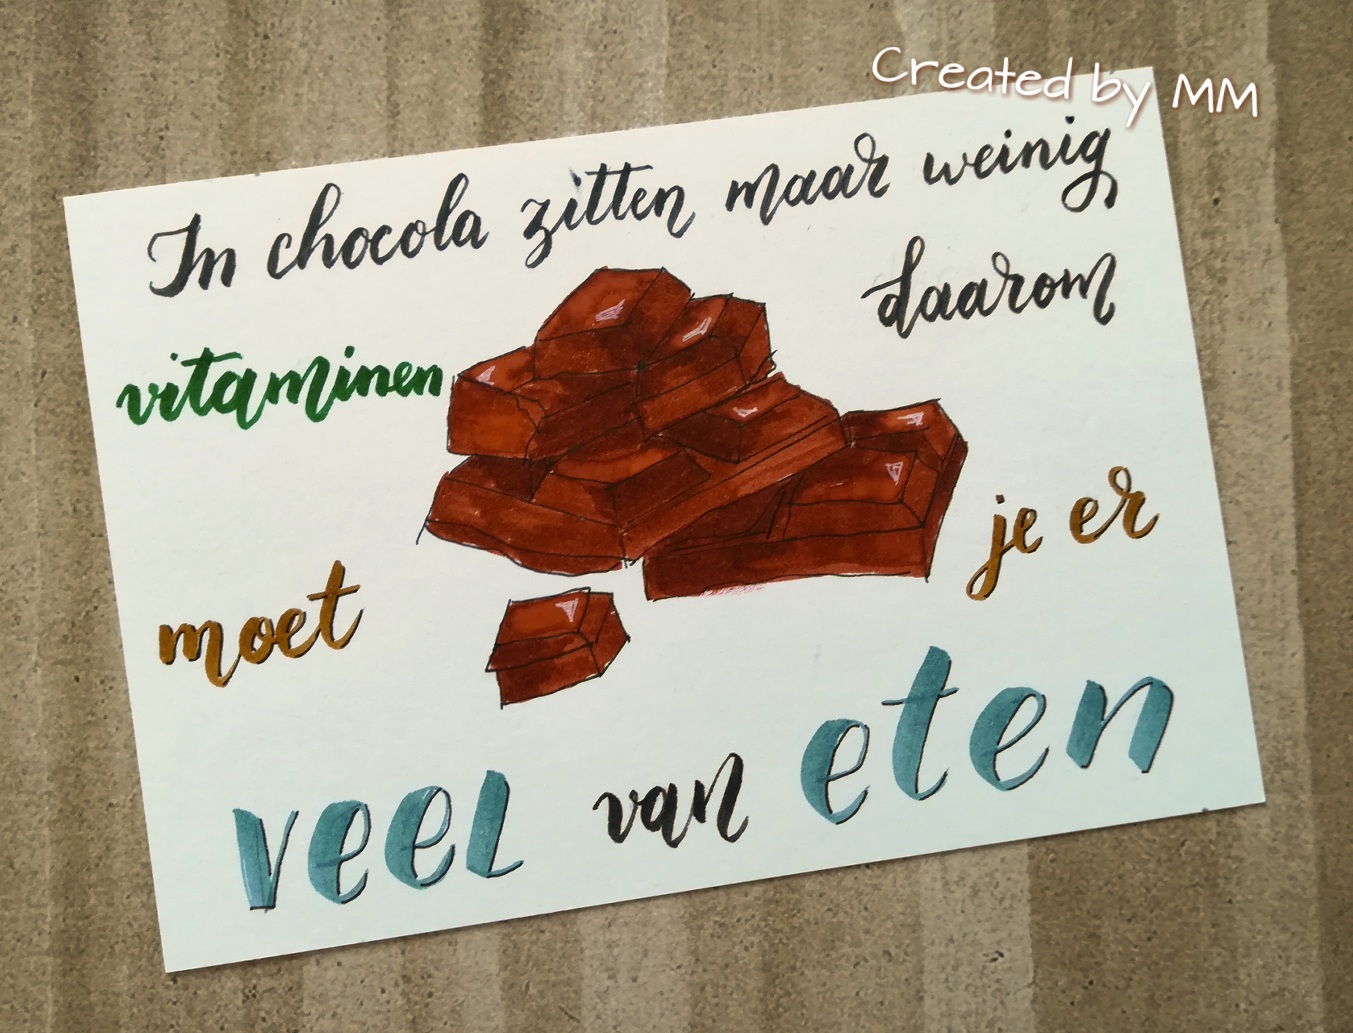 Created by MM
In chocola zitten maar weinig
vitaminen daarom
moet je er
veel van eten